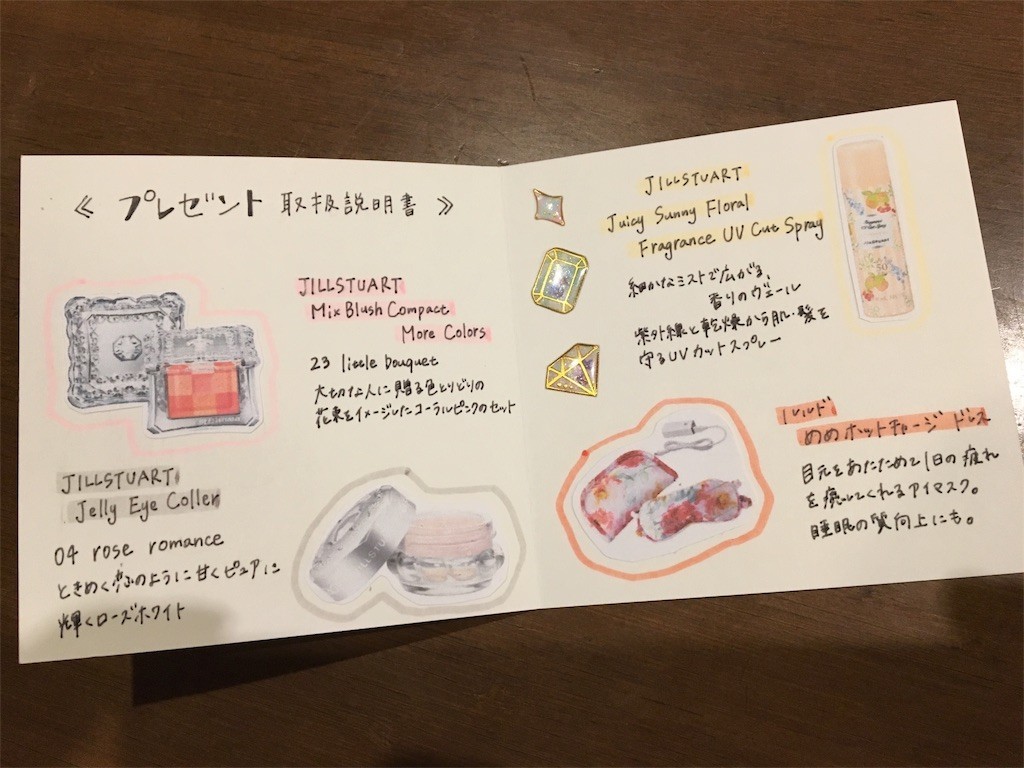 《 プレゼント 取扱説明書 》
JILLSTUART
Mix Blush Compact
More Colors
23 little bouquet
大切な人に贈る色とりどりの
花束をイメージしたコーラルピンクのセット
JILLSTUART
Jelly Eye Coller
04 rose romance
ときめく恋のように甘くピュアに
輝くローズホワイト
JILLSTUART
Juicy Sunny Floral
Fragrance UV Cut Spray
細かなミストで広がる、
香りのヴェール
紫外線と乾燥から肌・髪を
守るUVカットスプレー
ルルド
めめホットチャージ ドレス
目元をあたためて1日の疲れ
を癒してくれるアイマスク。
睡眠の質向上にも。